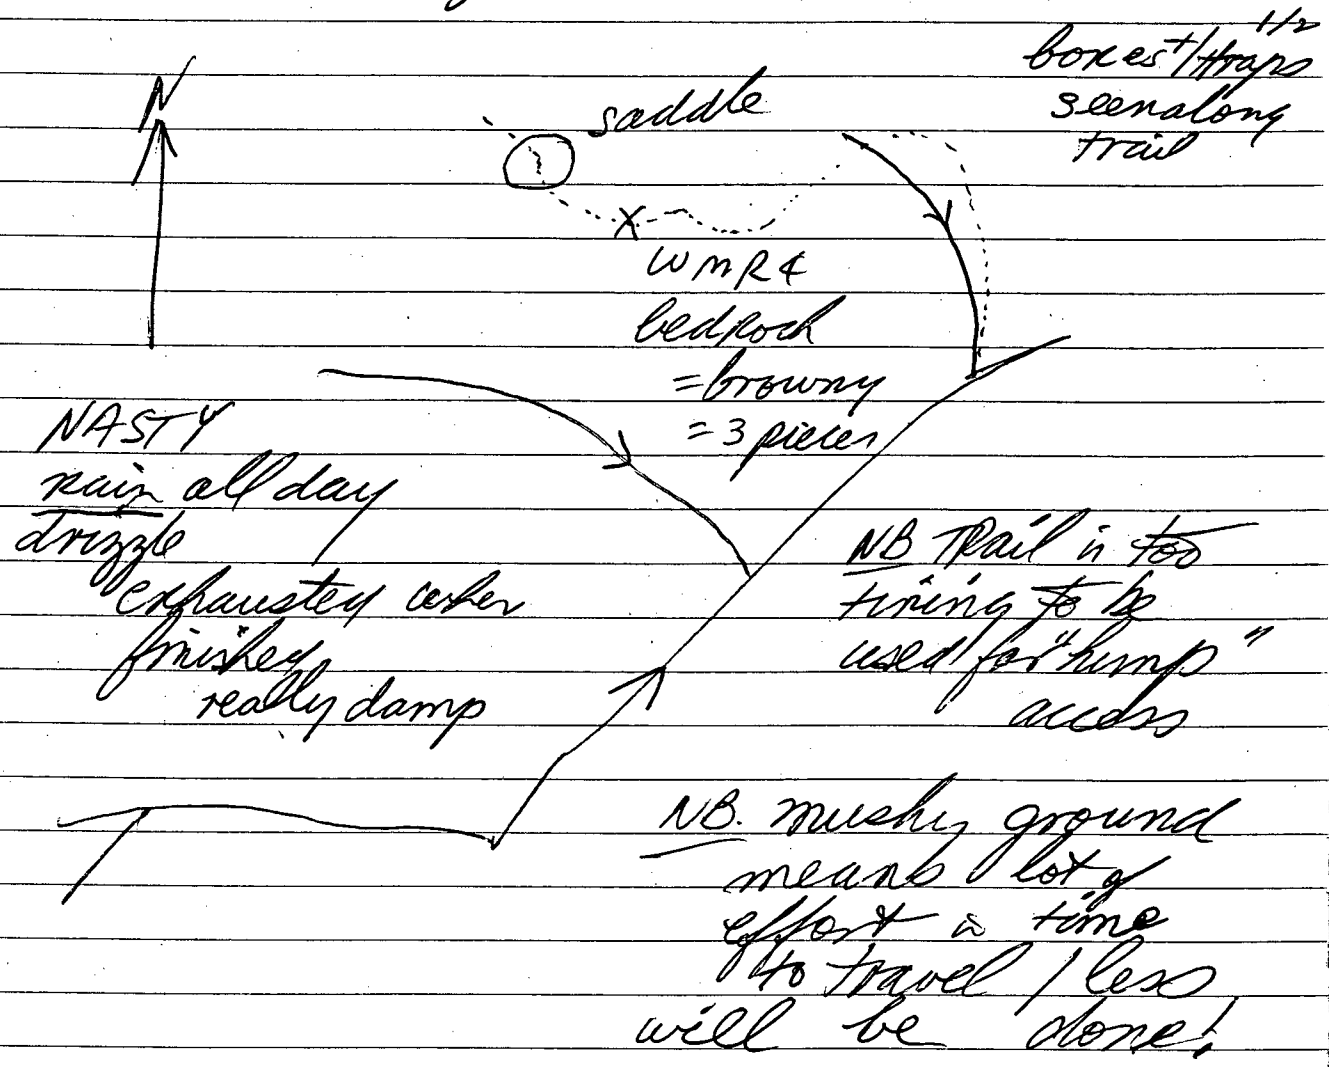 N
saddle
1/2
boxes + / traps
seen along
trail
X
WMR4
bedrock
= browny
= 3 pieces
NASTY
rain all day
drizzle
exhausted when
finished
really damp
NB Trail is too
tiring to be
used for "hump"
access
NB. mushy ground
means lot of
effort & time
to travel / less
will be done!